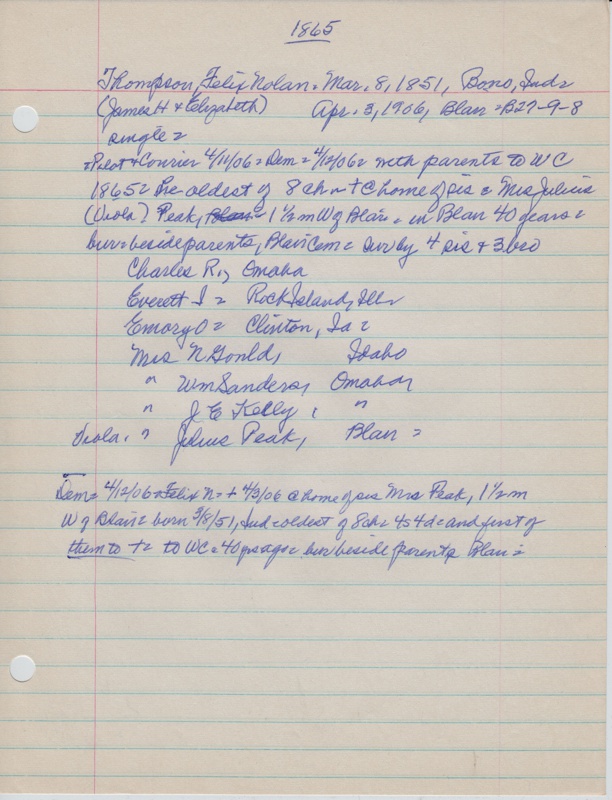 1865
Thompson, Felix Nolan = Mar. 8, 1851, Bono, Ind =
(James H + Elizabeth) Apr. 3, 1906, Blair = B27-9-8
single =
= Pilot + Courier 4/11/06 = Dem = 4/12/06 = with parents to WC
1865 = the oldest of 8 ch = + @ home of sis = Mrs Julius
(Viola) = Peak, Blair = 1 1/2 m W of Blair = in Blair 40 years =
bur = beside parents, Blair Cem = surv by 4 sis + 3 bro
Charles R., Omaha
Everett I = Rock Island, Ill =
Emory O = Clinton, Ia =
Mrs N Gould, Idaho
" Wm Sanders, Omaha
" J E Kelly, "
Viola = " Julius Peak, Blair =
Dem = 4/12/06 = Felix N = + 4/3/06 @ home of sis Mrs Peak, 1 1/2 m
W of Blair = born 3/8/51, Ind = oldest of 8 ch = 4s 4d = and first of
them to + = to WC = 40 yrs ago = bur beside parents Blair =